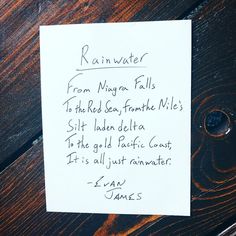 Rainwater
From Niagra Falls
To the Red Sea, from the Nile's
Silt laden delta
To the gold Pacific Coast,
It is all just rainwater.
-Evan
James